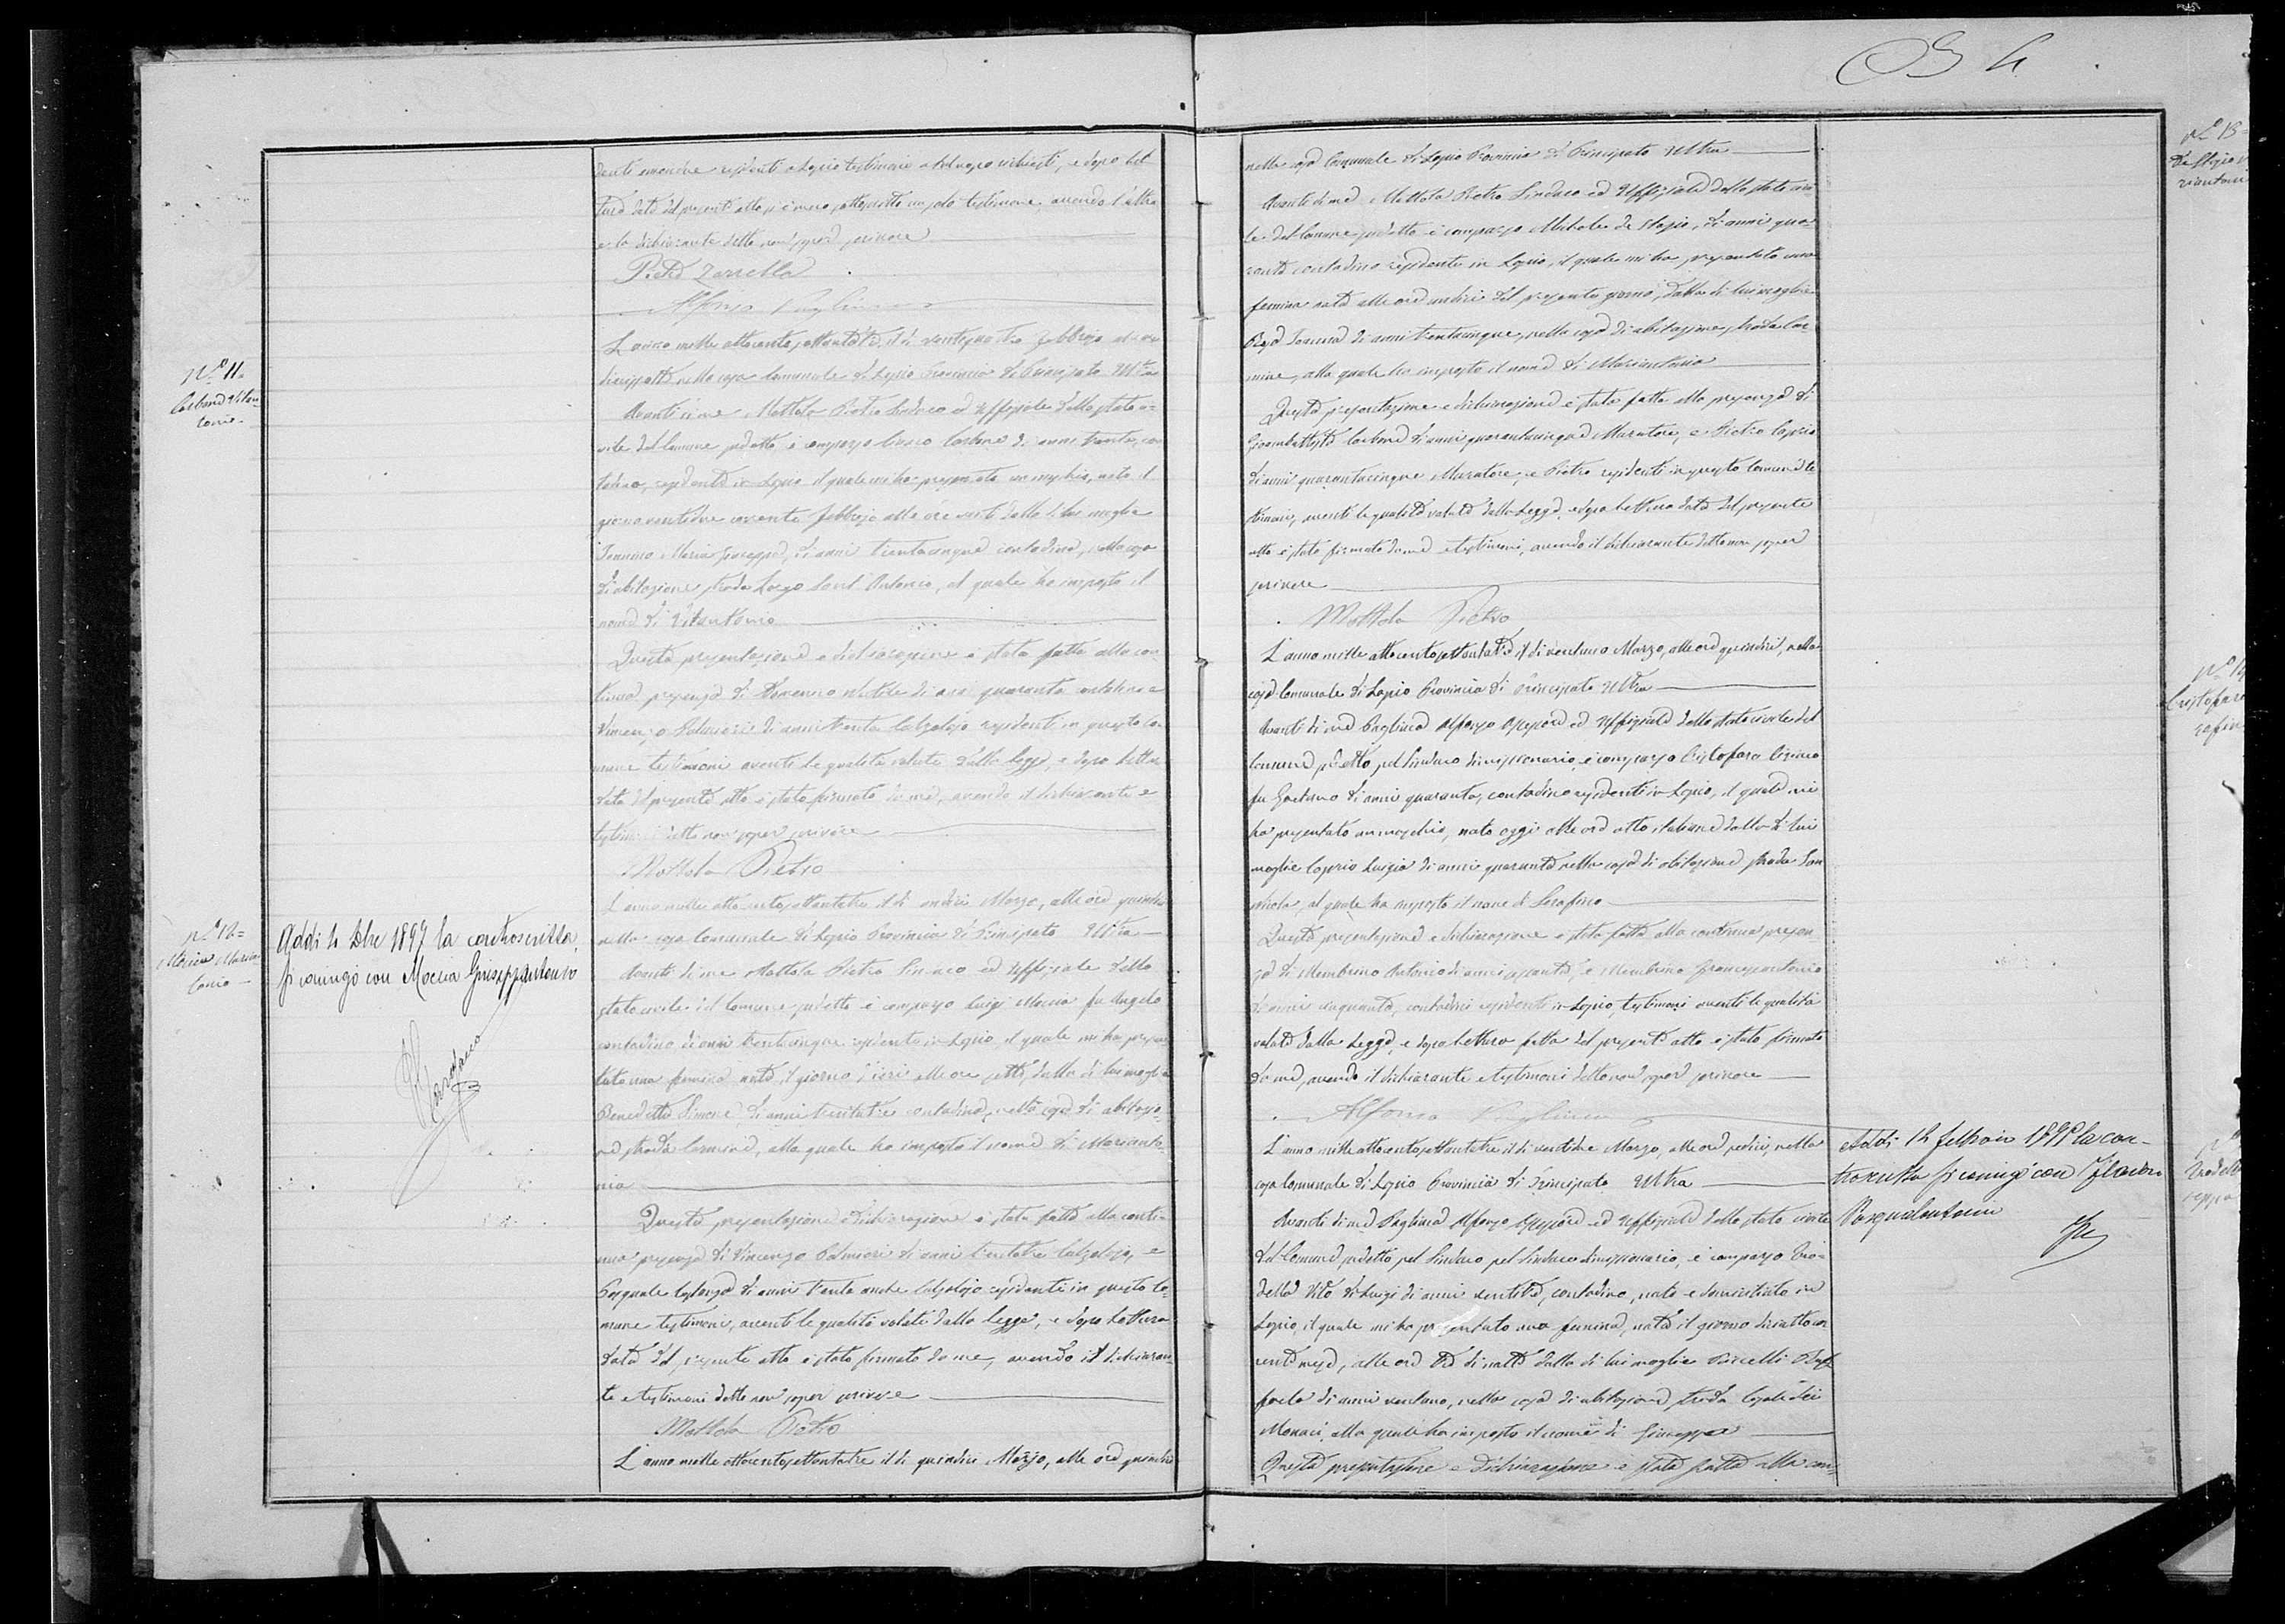 N.º 11.
Carbone Vitan
tonio.
N.º 12=
Moccia Marian
tonia
Addi 4 Xbre 1897 la controscritta
si coniugò con Moccia Giuseppantonio
denti residenti a Lapio testimoni e dopo let
tura data del presente atto si è un solo testimone, avendo l'altro
e la dichiarante detto non saper scrivere
Pietro Zarrella
Alfonso
L'anno mille ottocento settantatre, il dì ventiquattro febbrajo alle ore
diciassette nella casa Comunale di Lapio Provincia di Principato Ultra
Avanti di me Mottola Pietro Sindaco ed Uffiziale dello stato ci=
vile del Comune sudetto è comparso Carbone di anni trenta, con
tadino, residente in Lapio il quale mi ha presentato un maschio, nato il
giorno ventidue corrente febbrajo alle ore venti dalla di lui moglie
Maria Giuseppa, di anni trentacinque contadina, nella casa
di abitazione strada Largo Sant'Antonio, al quale ha imposto il
nome di Vitantonio
Questa presentazione e dichiarazione è stata fatta alla con
tinua presenza di di anni quaranta contadino e
Vincenzo Palmieri di anni trenta Calzolajo residenti in questo Co
mune testimoni aventi le qualità volute dalla legge, e dopo lettura
data del presente atto è stato firmato da me, avendo il dichiarante e
testimoni detto non saper scrivere
Mottola Pietro
L'anno mille ottocento settantatre il dì undici Marzo, alle ore quindici
nella casa Comunale di Lapio Provincia di Principato Ultra
Avanti di me Mottola Pietro Sindaco ed Uffiziale dello
stato civile del Comune sudetto è comparso Luigi Moccia fu Angelo
contadino, di anni trentacinque residente in Lapio, il quale mi ha presen
tato una femina nata, il giorno d'ieri alle ore sette, dalla di lui moglie
Benedetta Simone di anni trentatre contadina, nella casa di abitazio=
ne strada Carmine, alla quale ha imposto il nome di Marianto=
nia
Questa presentazione e dichiarazione è stata fatta alla conti=
nua presenza di Vincenzo Palmieri di anni trentatre Calzolajo, e
Pasquale di anni trenta anche Calzolajo residenti in questo Co=
mune testimoni, aventi le qualità volute dalla legge, e dopo lettura
data del presente atto è stato firmato da me, avendo il dichiaran=
te e testimoni detto non saper scrivere
Mottola Pietro
L'anno mille ottocento settantatre il dì quindici Marzo, alle ore quindici
nella casa Comunale di Lapio Provincia di Principato Ultra
Avanti di me Mottola Pietro Sindaco ed Uffiziale dello stato civi=
le del Comune sudetto è comparso Michele de Stasio, di anni qua=
ranta contadino residente in Lapio, il quale mi ha presentato una
femina nata alle ore undici del presente giorno, dalla di lui moglie
Rosa di anni trentacinque, nella casa di abitazione strada Car
mine, alla quale ha imposto il nome di Mariantonia
Questa presentazione e dichiarazione è stata fatta alla presenza di
Giambattista Carbone di anni quarantacinque Muratore, e Pietro Caprio
di anni quarantacinque Muratore, e Pietro residenti in questo Comune te
stimoni, aventi le qualità volute dalla Legge, e dopo lettura data del presente
atto è stato firmato da me e testimoni, avendo il dichiarante detto non saper
scrivere
Mottola Pietro
L'anno mille ottocento settantatre il dì ventuno Marzo, alle ore quindici, nella
casa Comunale di Lapio Provincia di Principato Ultra
Avanti di me Pagliuca Alfonso Assessore ed Uffiziale dello stato civile del
Comune sudetto pel Sindaco dimissionario, è comparso Cristofaro
fu Gaetano di anni quaranta, contadino residente in Lapio, il quale mi
ha presentato un maschio, nato oggi alle ore otto italiane dalla di lui
moglie Caprio Luigia di anni quaranta nella casa di abitazione strada San
al quale ha imposto il nome di Serafino
Questa presentazione e dichiarazione è stata fatta alla continua presen=
za di Membrino Antonio di anni e Membrino Francescantonio
di anni cinquanta, contadini residenti in Lapio, testimoni aventi le qualità
volute dalla Legge, e dopo lettura fatta del presente atto è stato firmato
da me, avendo il dichiarante e testimoni detto non saper scrivere
Alfonso Pagliuca
L'anno mille ottocento settantatre il dì ventidue Marzo, alle ore sedici, nella
casa Comunale di Lapio Provincia di Principato Ultra
Avanti di me Pagliuca Alfonso Assessore ed Uffiziale dello stato civile
del Comune sudetto pel Sindaco pel Sindaco dimissionario, è comparso Tro=
della Vito di Luigi di anni ventitre, contadino, nato e domiciliato in
Lapio, il quale mi ha presentato una femina, nata il giorno diciotto cor
rente mese, alle ore tre di notte dalla di lui moglie Raf
faela di anni ventuno, nella casa di abitazione, strada dei
Monaci, alla quale ha imposto il nome di Giuseppa
Questa presentazione e dichiarazione è stata fatta alla con=
N.º 13=
De Stasio
riantoni
Cristofaro
rafin
Addi 12 febbraio 1898 la con=
troscritta si coniugò con
Pasqualantonio
Trodella
seppa